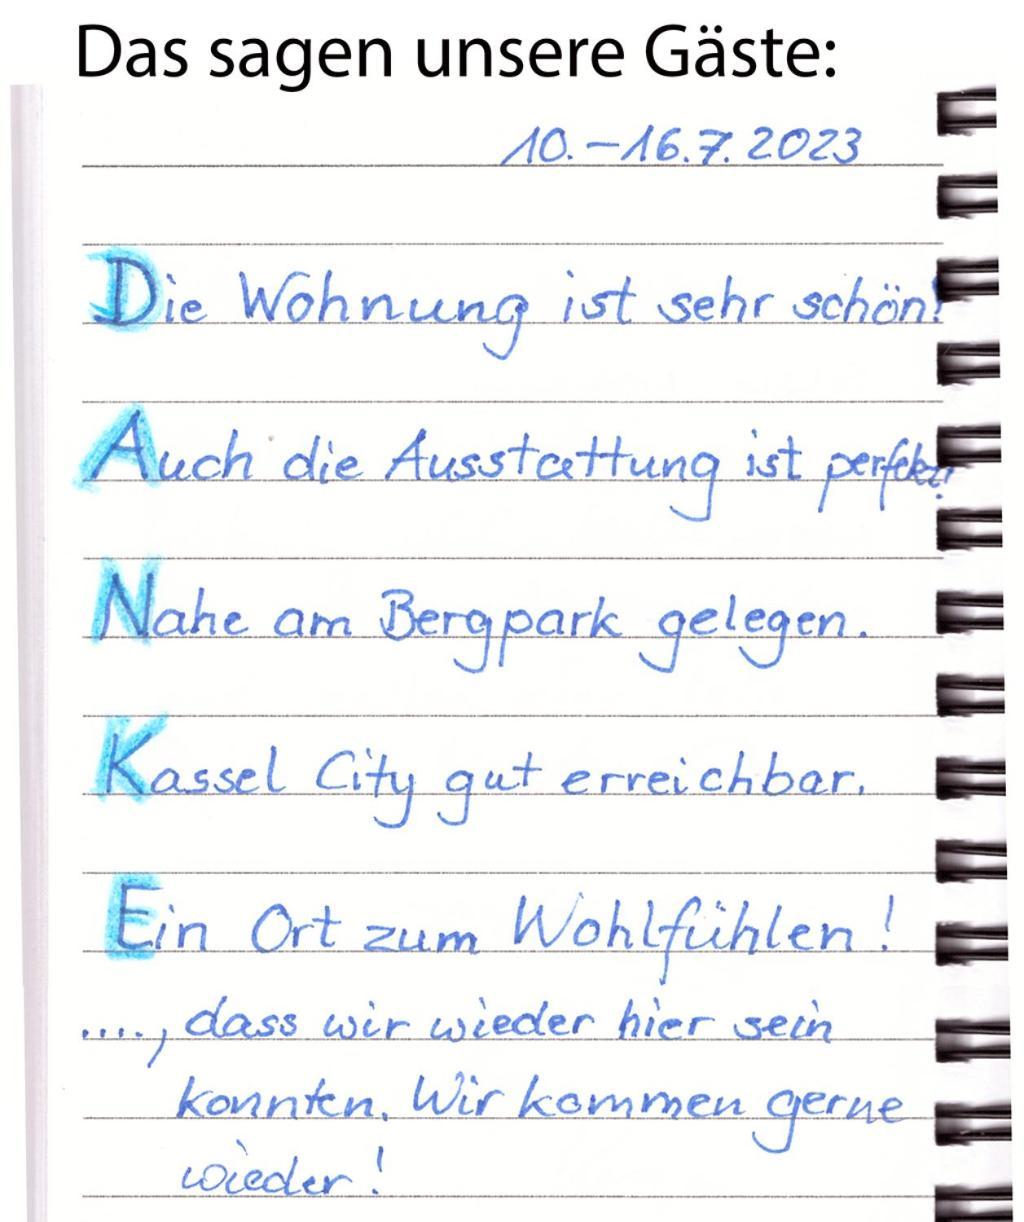 Das sagen unsere Gäste:
10.–16.7.2023
Die Wohnung ist sehr schön!
Auch die Ausstattung ist perfekt!
Nahe am Bergpark gelegen.
Kassel City gut erreichbar.
Ein Ort zum Wohlfühlen!
...., dass wir wieder hier sein
konnten. Wir kommen gerne
wieder!